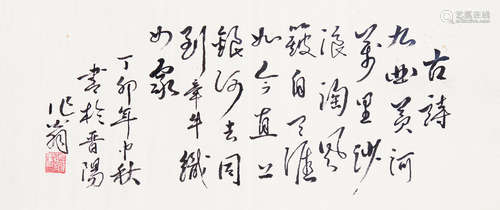 古詩
九曲黃河
萬里沙
浪淘風
簸自天涯
如今直上
銀河去同
到牽牛織
女家
丁卯年中秋
書於晋陽
作翁